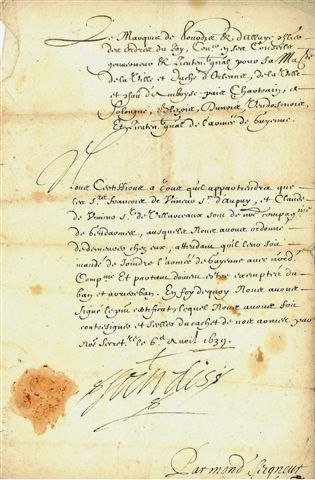 Le Marquis de Sourdis & d'Alluye ch{er}
des ordres du Roy, Con{er} en ses Conseils
gouverneur & Lieuten{t} gnal pour sa Ma{té}
de la Ville et Duché d'Orleans, de la Ville
et chau d'Amboyse pais Chartrain,
Sologne, Blezois, Dunois Vendosmois,
Et Lieuten{t} gnal de l'armée de Guyenne
Nous Certiffions a tous qu'il appartiendra que
les S{rs} Francois de S{r} et Claude
de S{r} de Villavceaux sont de nre compag{nie}
de gendarmes, ausquels Nous avons ordonné
de demeurer chez eux, attendant qu'il leur soit
mandé de joindre l'armée de Guyenne avec nred.
Comp{nie} Et partant doivent estre exemptez du
ban et arriereban. En foy de quoy Nous avons
signé le pnt certificat, lequel Nous avons fait
contresigner et seeller du cachet de nos armes par
Nre Secret{re} le 6{e} d'Avril 1639.
Sourdis
Par mond Seigneur